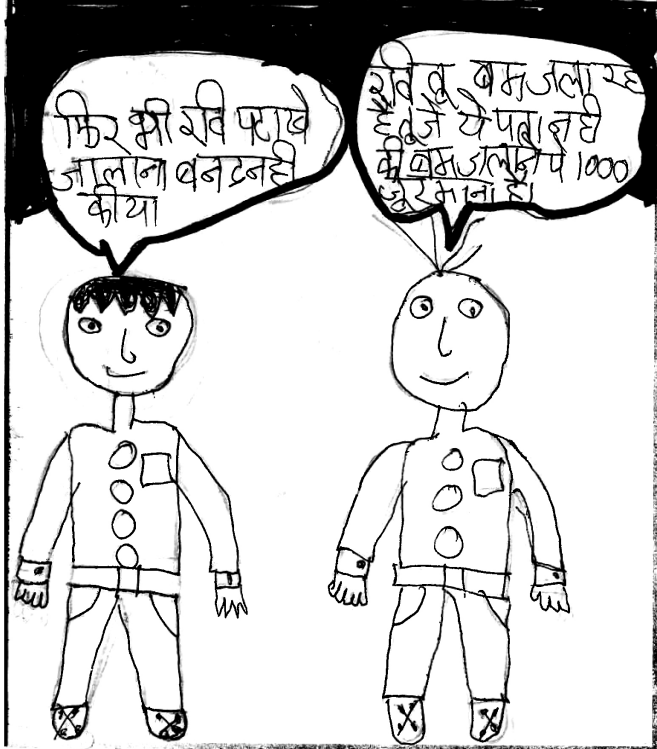 फिर भी रवि पटाखे
जालाना बनदनही
कीया
रवि तू बम जला रह
है तूजे ये पता नही
की बमजलाने पे 1000
जूरमाना है।